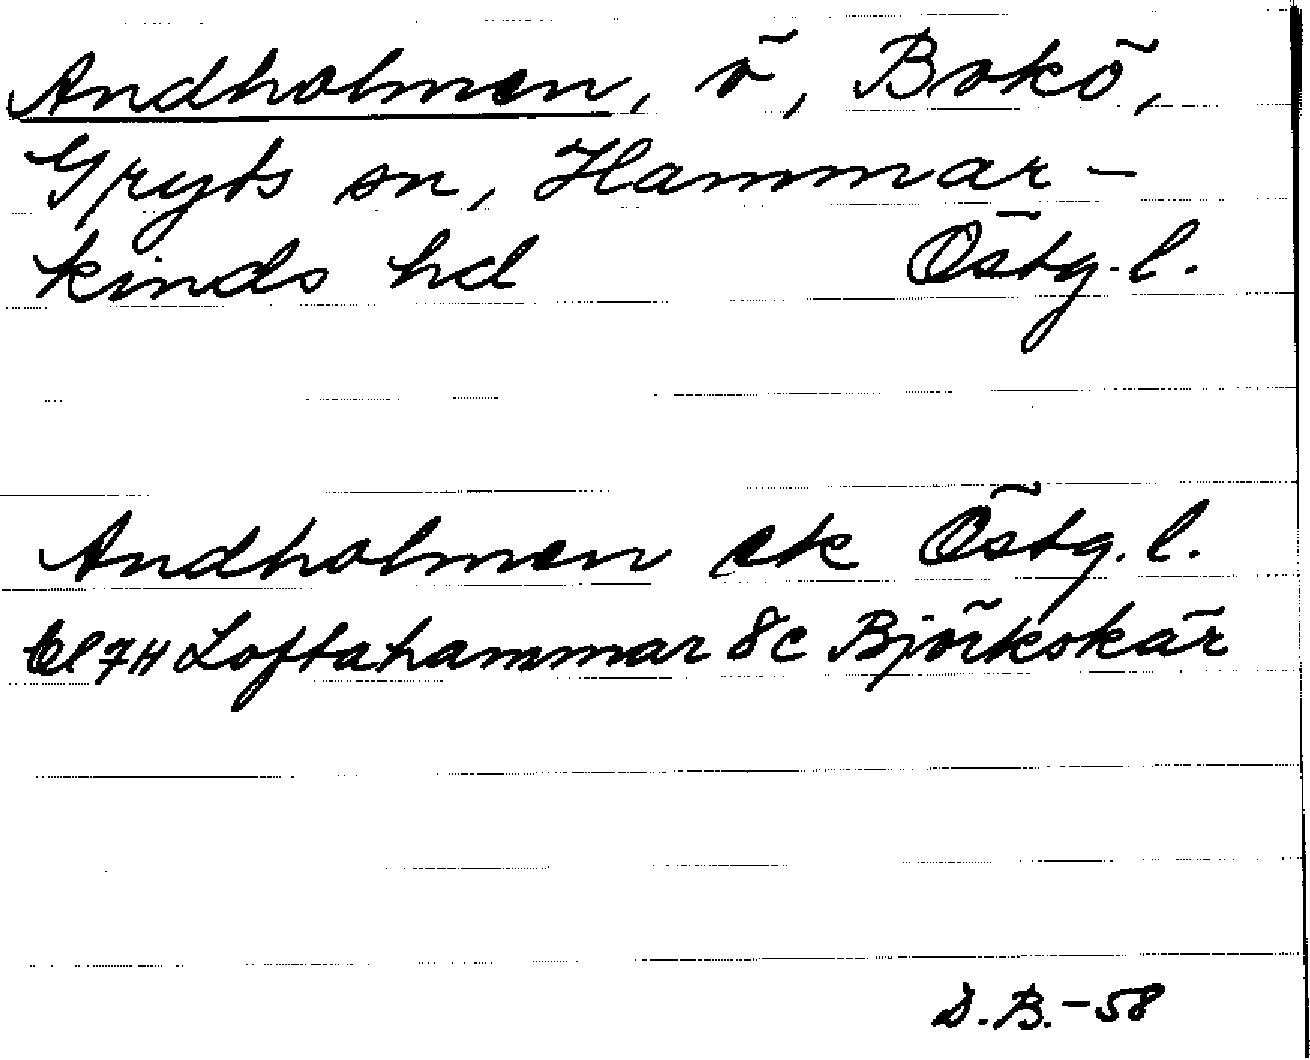 Andholmen, ö, Bokö,
Gryts sn, Hammar-
kinds hd Östg. l.
Andholmen ek Östg. l.
Bl 7H Loftahammar 8c Björkskär
D.B.-58